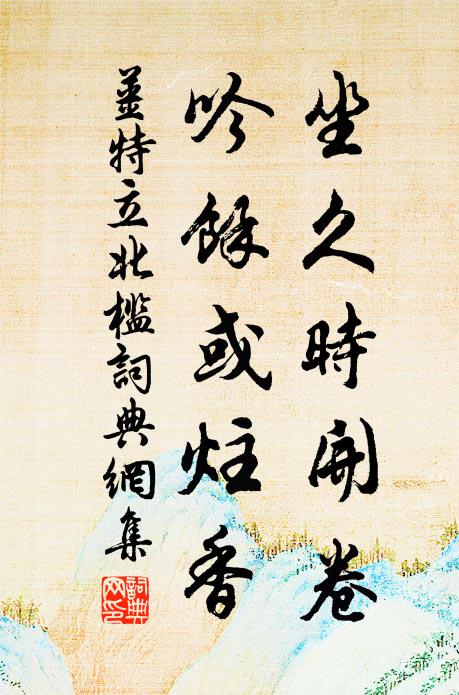 坐久時開卷
吟餘或炷香
姜特立北檻詞典網集
詞典網印